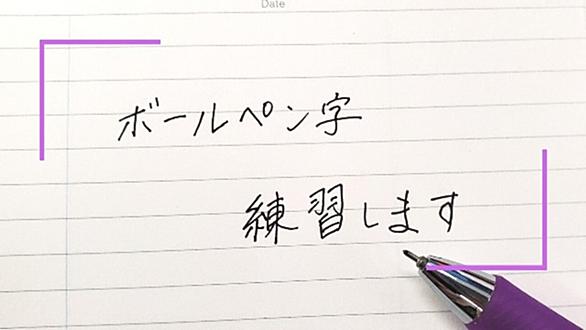 Date
ボールペン字
練習します